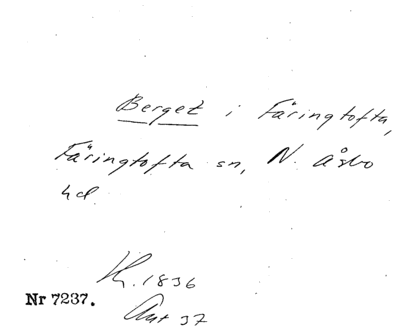 Berget i Färingtofta,
Färingtofta sn, N. Åsbo
hd
1836
Nr 7237.
37